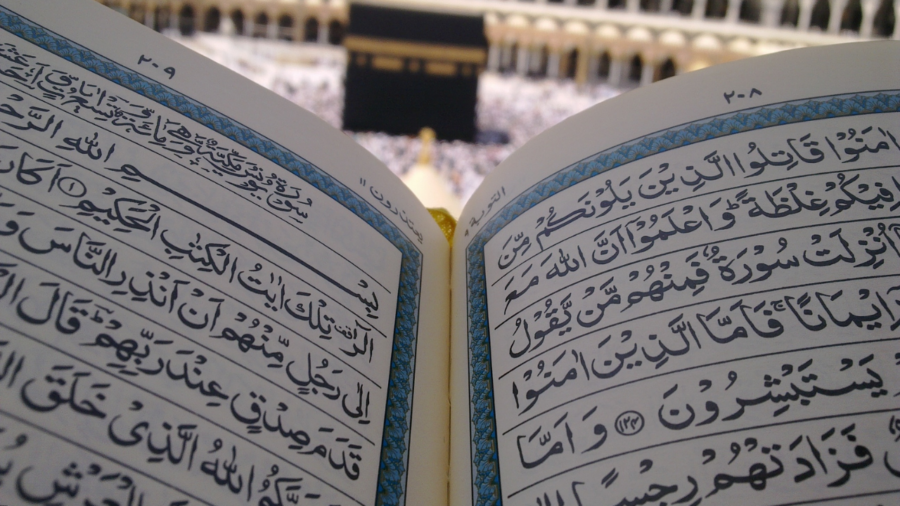 ٢٠٨
التوبة ٩
اٰمَنُوْا قَاتِلُوا الَّذِيْنَ يَلُوْنَكُمْ مِّنَ
فِيْكُمْ غِلْظَةً ؕ وَاعْلَمُوْۤا اَنَّ اللّٰهَ مَعَ
اُنْزِلَتْ سُوْرَةٌ فَمِنْهُمْ مَّنْ يَّقُوْلُ
اِيْمَانًا ۚ فَاَمَّا الَّذِيْنَ اٰمَنُوْا
يَسْتَبْشِرُوْنَ ﴿١٢٤﴾ وَاَمَّا
فَزَادَتْهُمْ رِجْسًا
٢٠٩
يعتذرون ١١
سُوْرَةُ يُوْنُسَ مَكِّيَّةٌ وَّهِيَ مِائَةٌ وَّتِسْعُ اٰيَاتٍ
بِسْمِ اللّٰهِ الرَّحْ
الٓرٰ ۫ تِلْكَ اٰيٰتُ الْكِتٰبِ الْحَكِيْمِ ﴿١﴾ اَكَانَ
اِلٰى رَجُلٍ مِّنْهُمْ اَنْ اَنْذِرِ النَّاسَ وَ
قَدَمَ صِدْقٍ عِنْدَ رَبِّهِمْ ؕ قَالَ
رَبَّكُمُ اللّٰهُ الَّذِيْ خَلَقَ
الْعَرْشِ